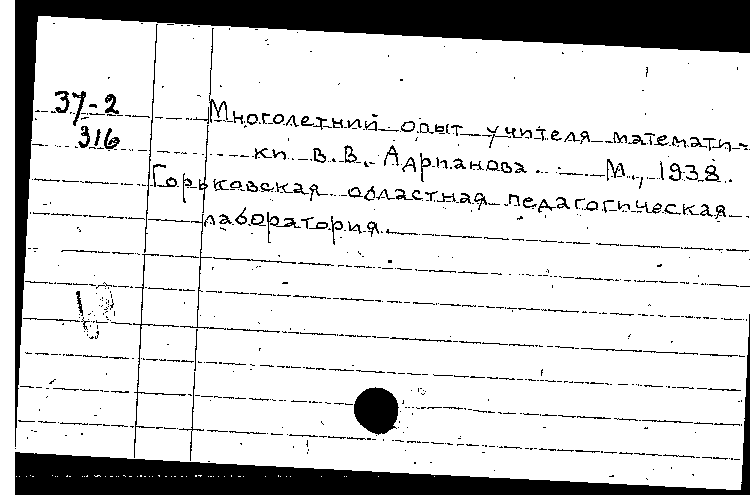 37-2
316
Многолетний опыт учителя математи-
ки В.В. Адрианова. - М., 1938.
Горькавская областная педагогическая
лаборатория.